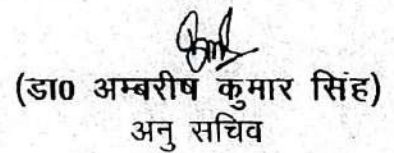 (डा0 अम्बरीष कुमार सिंह)
अनु सचिव